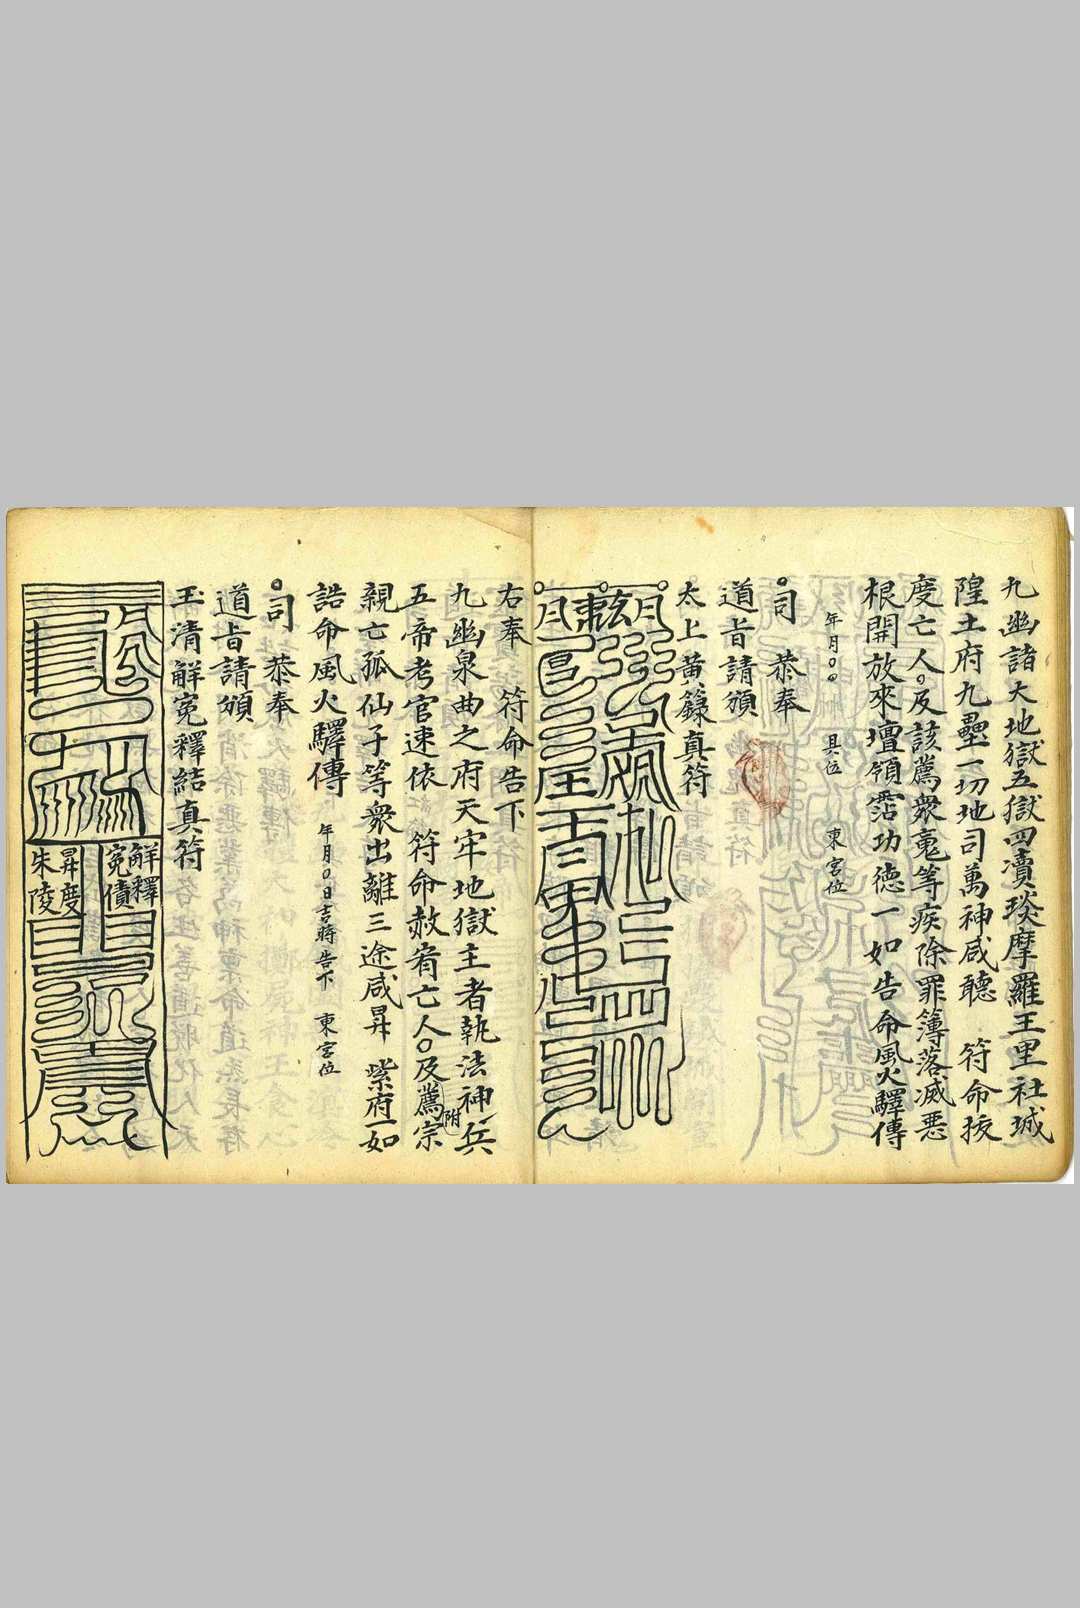 九幽諸大地獄五獄四瀆琰摩羅王里社城
隍土府九壘一切地司萬神咸聽　符命拔
度亡人○及該薦衆䰟等疾除罪簿落滅惡
根開放來壇領霑功德一如告命風火驛傳
年月○○　具位　東宮位
○司　恭奉
道旨請頒
太上黄籙真符
右奉　符命告下
九幽泉曲之府天牢地獄主者執法神兵
五帝考官速依　符命赦宥亡人○及薦附宗
親亡孤仙子等衆出離三途咸昇　紫府一如
誥命風火驛傳
年月○日吉時告下　東宮位
○司　恭奉
道旨請頒
玉清解冤釋結真符
解釋
冤債
昇度
朱陵